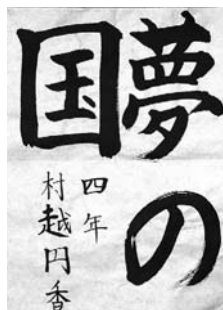 夢の
国
四年
村越円香